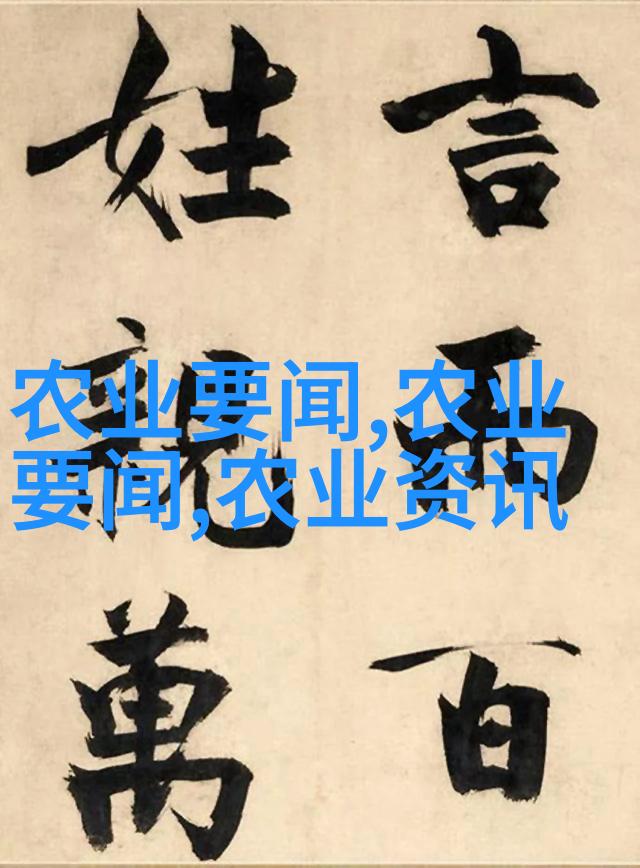 言而百
姓親萬
农业要闻,农业
要闻,农业资讯